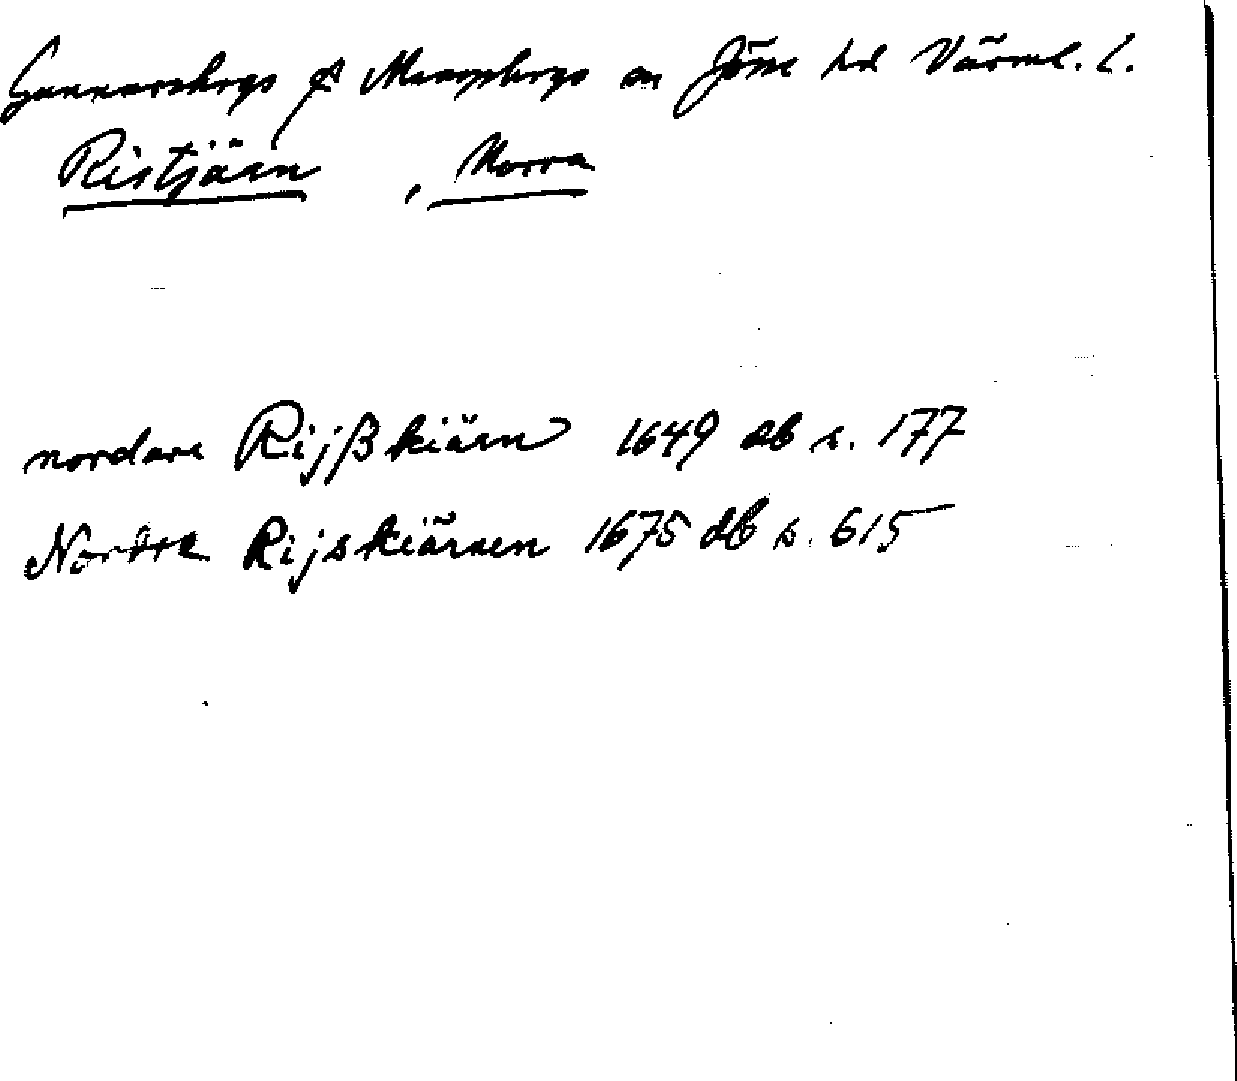 Gunnarsbergs o Mangsbergs on Jösse hd Värml. l.
Ristjärn, Norra
nordare Rijßkiärn 1649 db s. 177
Nordre Rijskiärnen 1675 db s. 615